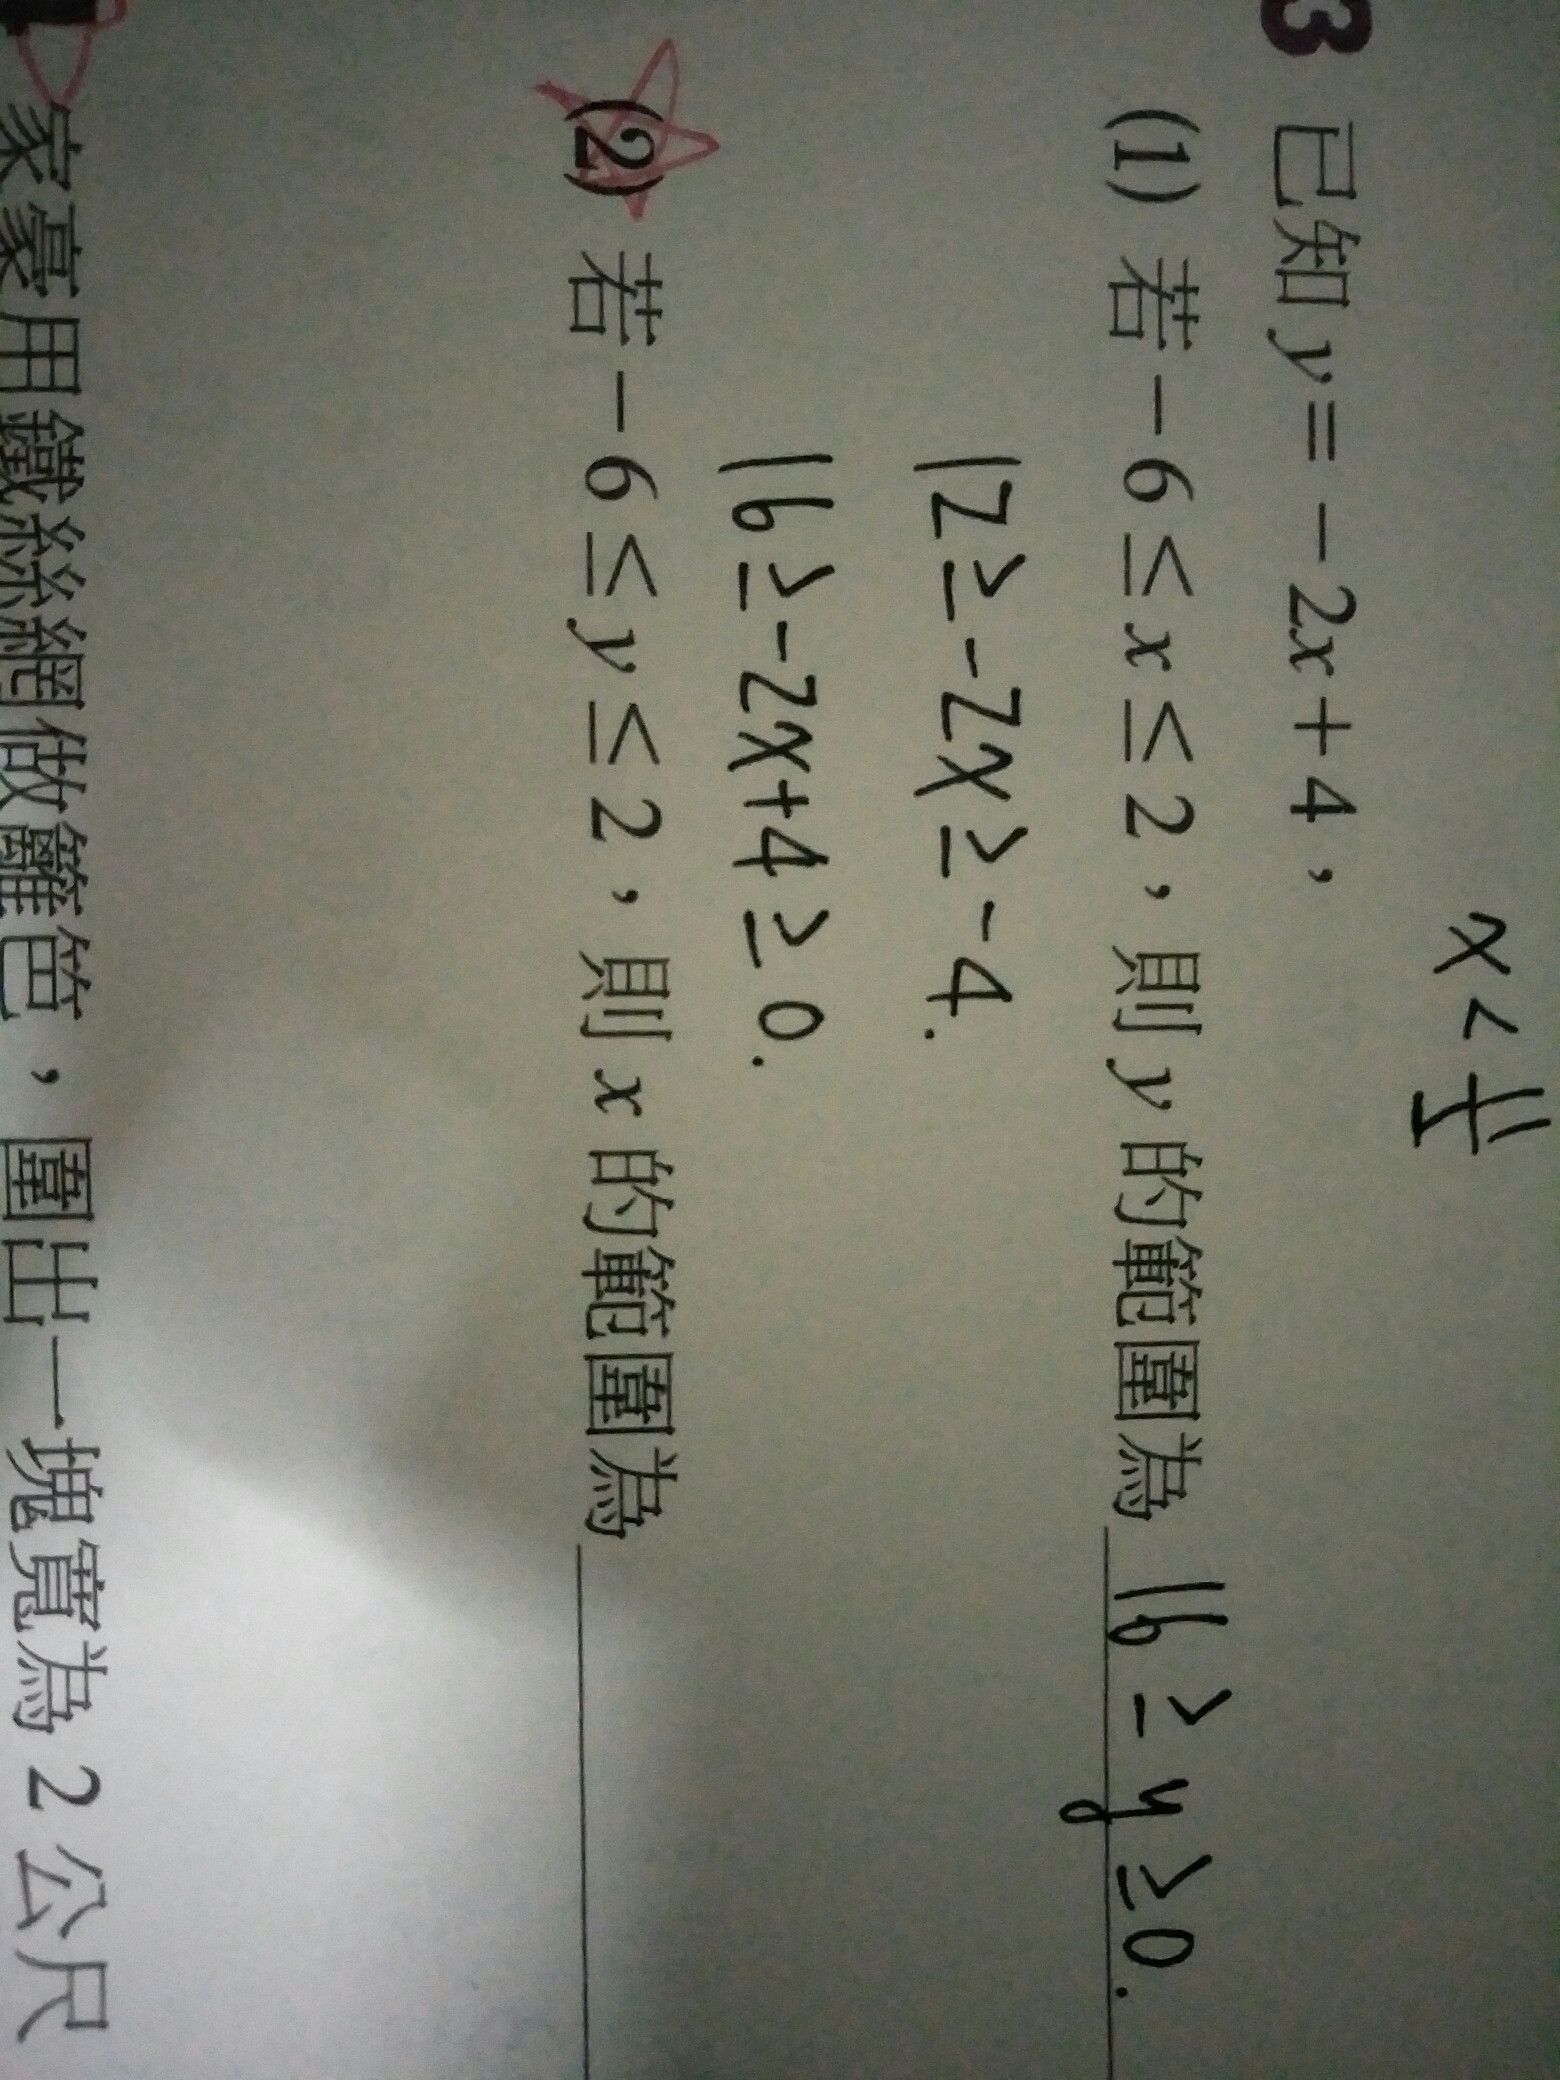 x < 11/5
3 已知 y = －2x＋4，
(1) 若－6 ≤ x ≤ 2，則 y 的範圍為 16 ≥ y ≥ 0.
12 ≥ -2x ≥ -4.
16 ≥ -2x+4 ≥ 0.
(2) 若－6 ≤ y ≤ 2，則 x 的範圍為
家豪用鐵絲網做籬笆，圍出一塊寬為 2 公尺